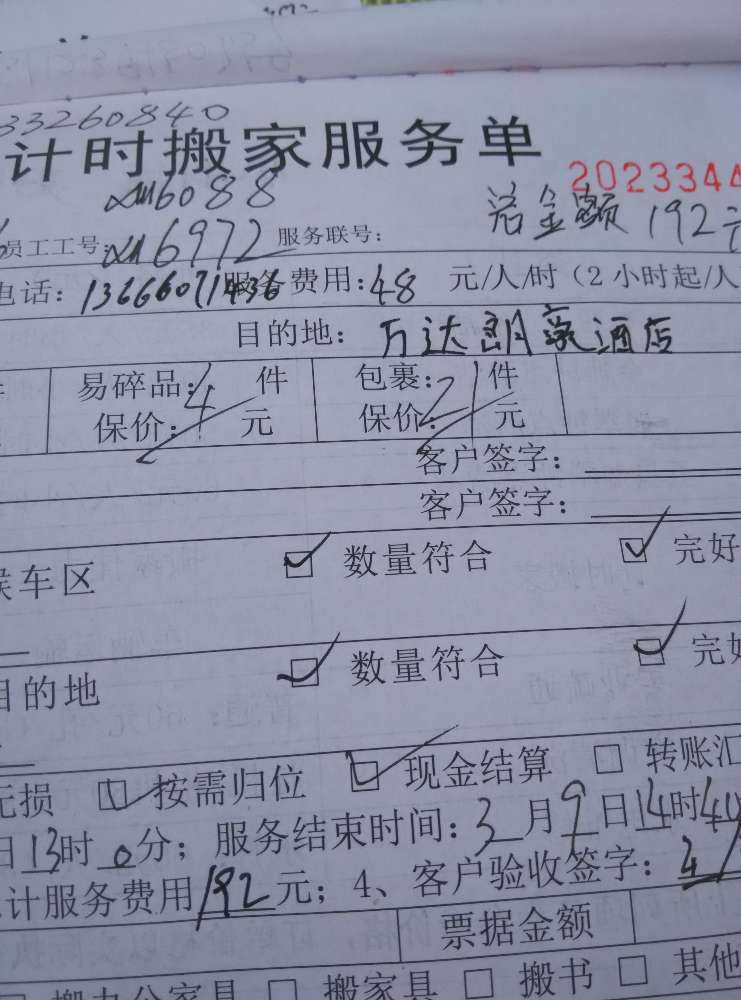 33260840
计时搬家服务单
6088
2023344
总金额 192元
员工工号: 6972 服务联号:
电话: 13666071436 服务费用: 48 元/人/时（2小时起/人
目的地: 万达朗豪酒店
易碎品: 件 包裹: 件
保价: 元 保价: 元
客户签字:
客户签字:
候车区 ☑ 数量符合 ☑ 完好
目的地 ☑ 数量符合 ☑ 完好
无损 ☑ 按需归位 ☑ 现金结算 □ 转账汇
日13时0分；服务结束时间: 3月9日14时44
计服务费用192元；4、客户验收签字:
票据金额
搬办公家具 □ 搬家具 □ 搬书 □ 其他